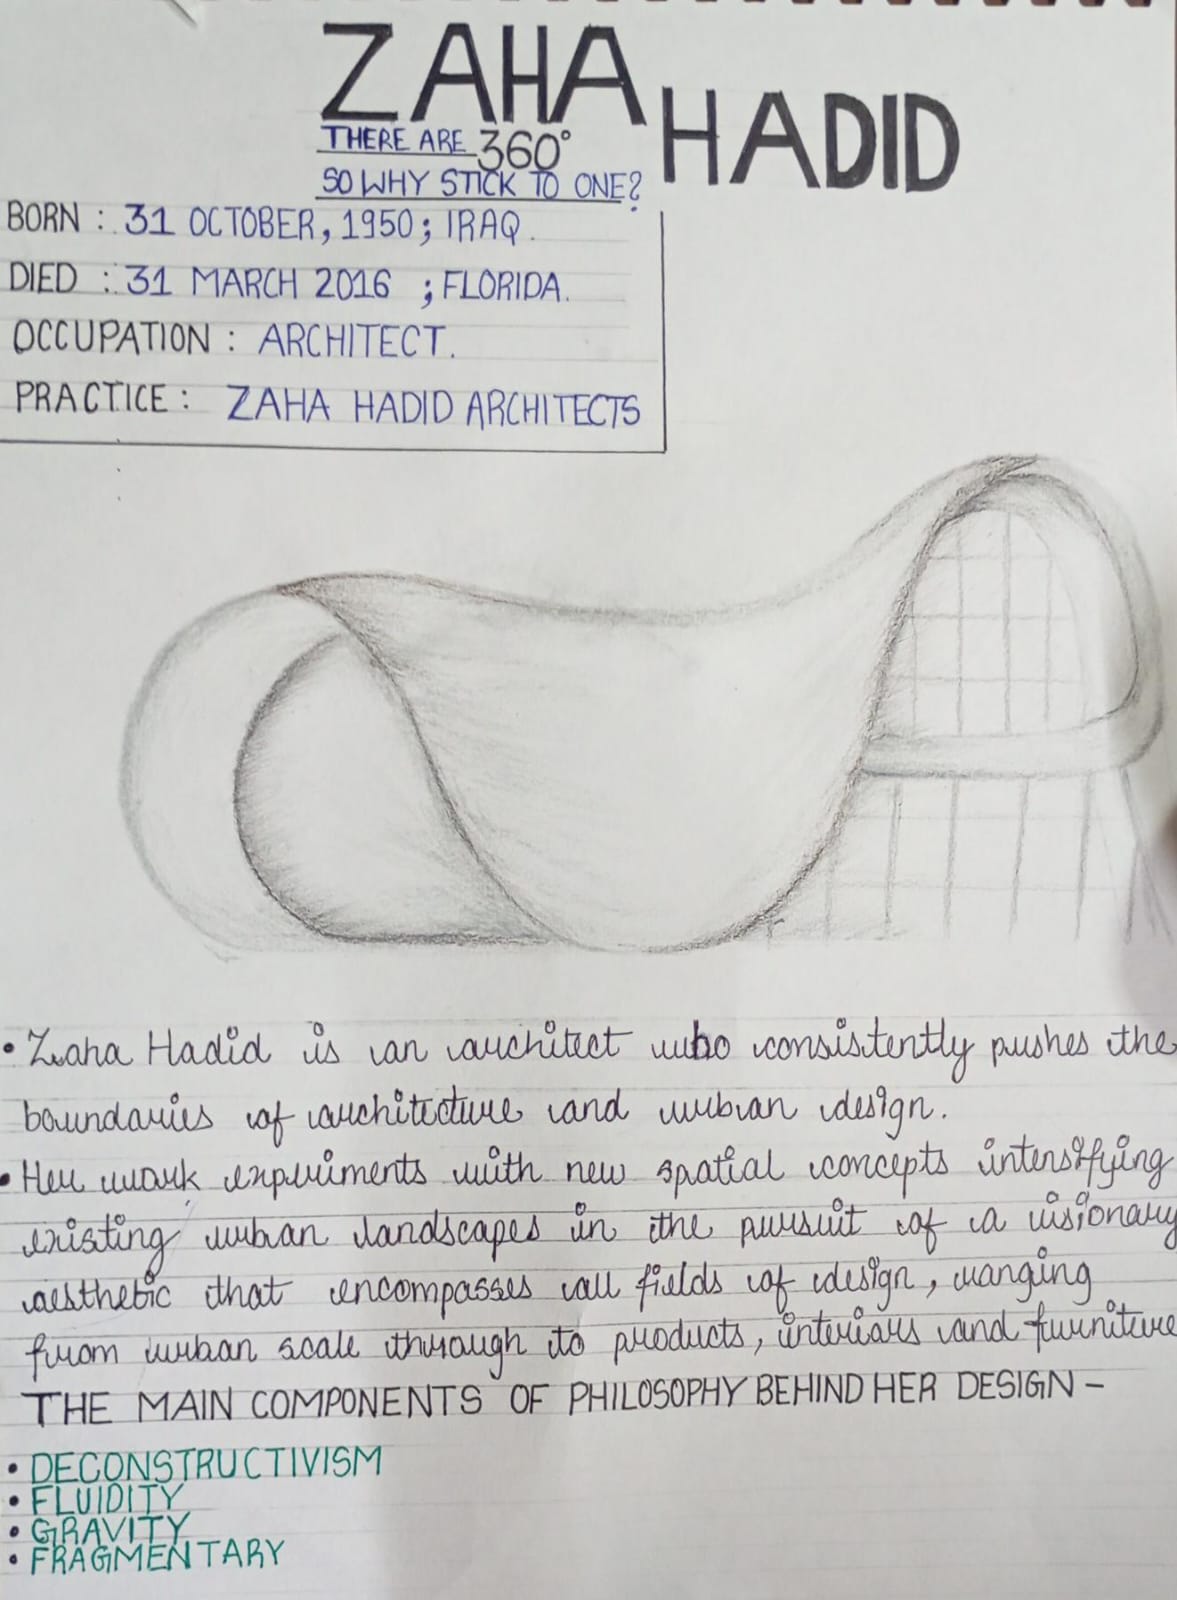 ZAHA HADID
THERE ARE 360°
SO WHY STICK TO ONE?
BORN : 31 OCTOBER, 1950; IRAQ.
DIED : 31 MARCH 2016 ; FLORIDA.
OCCUPATION : ARCHITECT.
PRACTICE : ZAHA HADID ARCHITECTS
• Zaha Hadid is an architect who consistently pushes the
boundaries of architecture and urban design.
• Her work experiments with new spatial concepts intensifying
existing urban landscapes in the pursuit of a visionary
aesthetic that encompasses all fields of design, ranging
from urban scale through to products, interiors and furniture
THE MAIN COMPONENTS OF PHILOSOPHY BEHIND HER DESIGN –
• DECONSTRUCTIVISM
• FLUIDITY
• GRAVITY
• FRAGMENTARY